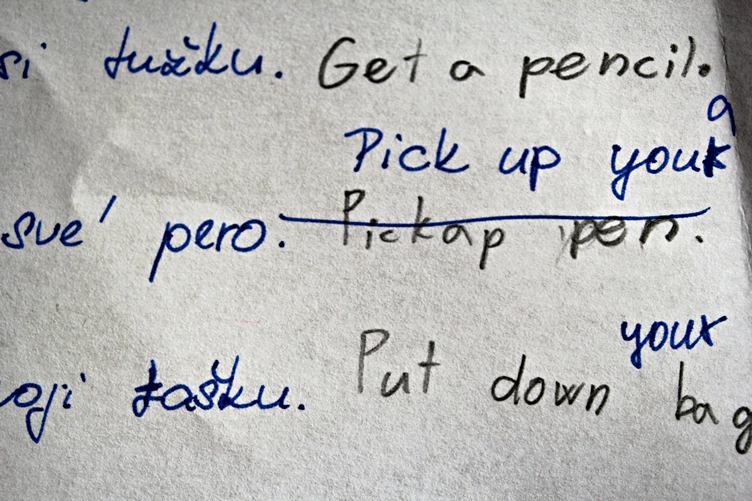 si tužku. Get a pencil.
a
Pick up your
své pero. Pickap pen.
your
oji tašku. Put down bag